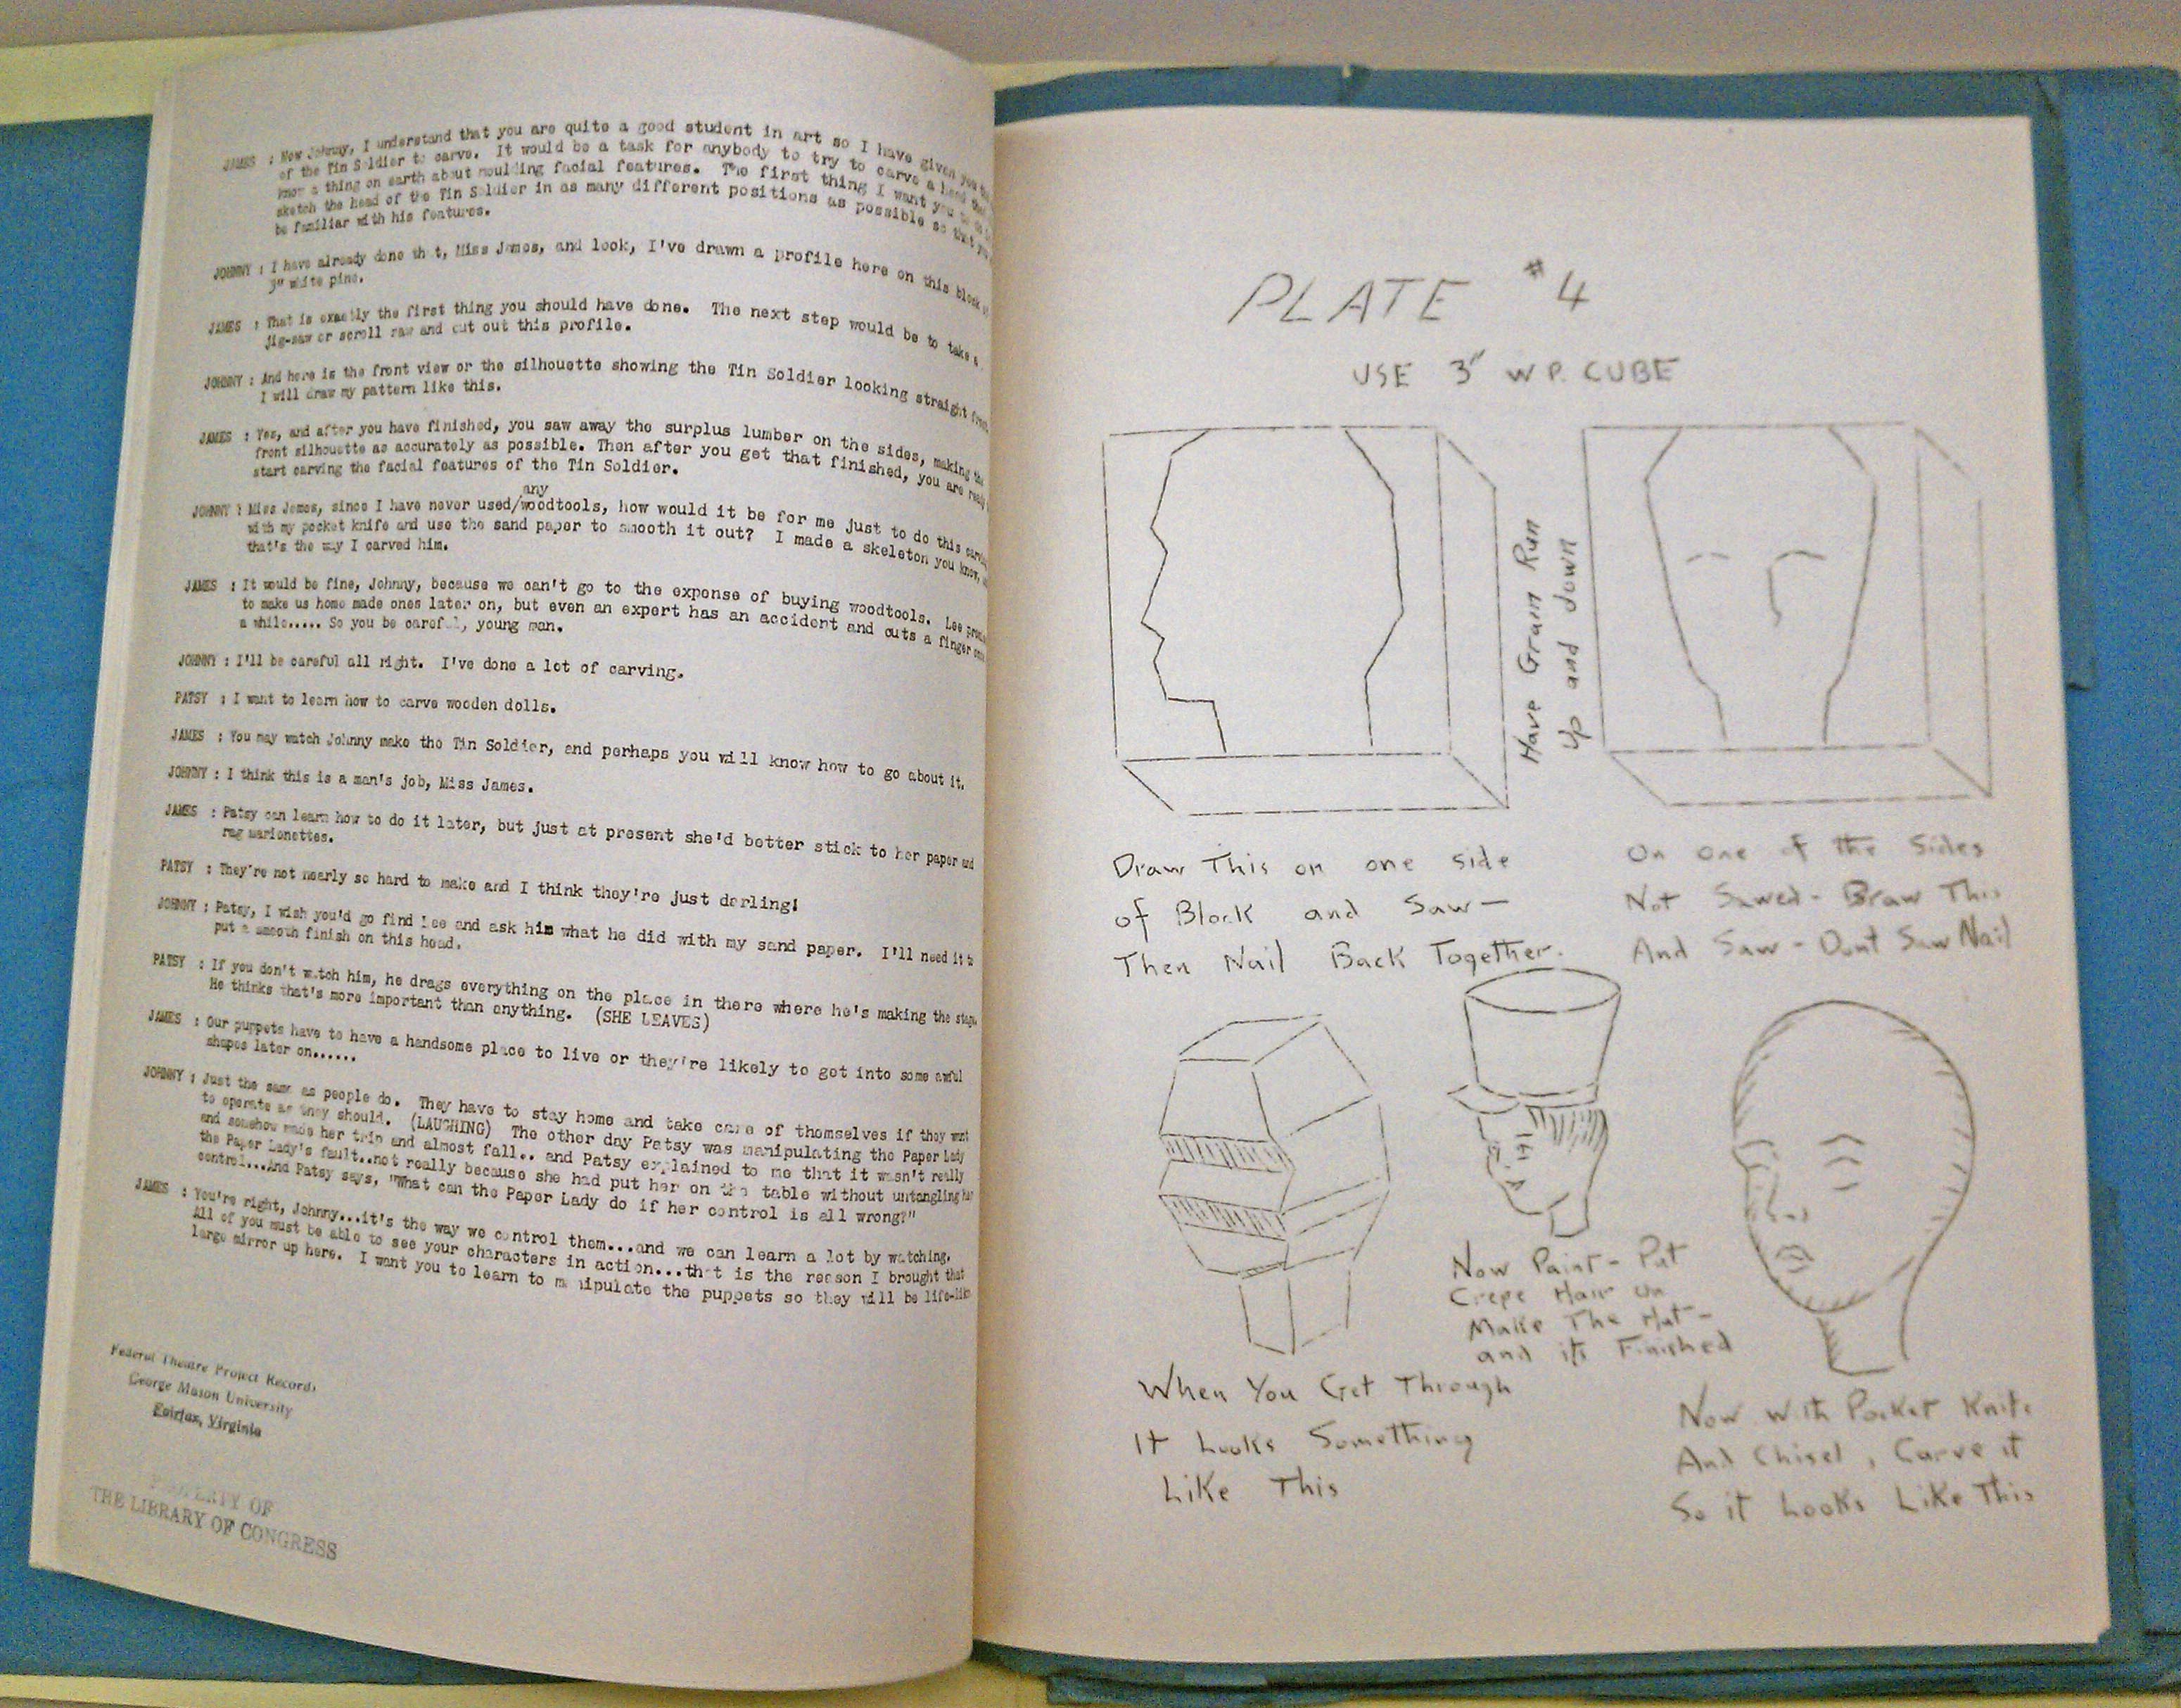 JAMES : Now Johnny, I understand that you are quite a good student in art so I have given you
of the Tin Soldier to carve. It would be a task for anybody to try to carve a head
know a thing on earth about moulding facial features. The first thing I want you to do
sketch the head of the Tin Soldier in as many different positions as possible so that you
be familiar with his features.
JOHNNY : I have already done that, Miss James, and look, I've drawn a profile here on this block
3" white pine.
JAMES : That is exactly the first thing you should have done. The next step would be to take a
jig-saw or scroll saw and cut out this profile.
JOHNNY : And here is the front view or the silhouette showing the Tin Soldier looking straight
I will draw my pattern like this.
JAMES : Yes, and after you have finished, you saw away the surplus lumber on the sides, making the
front silhouette as accurately as possible. Then after you get that finished, you are
start carving the facial features of the Tin Soldier.
any
JOHNNY : Miss James, since I have never used/woodtools, how would it be for me just to do this
with my pocket knife and use the sand paper to smooth it out? I made a skeleton you know,
that's the way I carved him.
JAMES : It would be fine, Johnny, because we can't go to the expense of buying woodtools. Lee
to make us home made ones later on, but even an expert has an accident and cuts a finger
a while..... So you be careful, young man.
JOHNNY : I'll be careful all right. I've done a lot of carving.
PATSY : I want to learn how to carve wooden dolls.
JAMES : You may watch Johnny make the Tin Soldier, and perhaps you will know how to go about it.
JOHNNY : I think this is a man's job, Miss James.
JAMES : Patsy can learn how to do it later, but just at present she'd better stick to her paper and
rag marionettes.
PATSY : They're not nearly so hard to make and I think they're just darling!
JOHNNY : Patsy, I wish you'd go find Lee and ask him what he did with my sand paper. I'll need it to
put a smooth finish on this head.
PATSY : If you don't watch him, he drags everything on the place in there where he's making the stage.
He thinks that's more important than anything. (SHE LEAVES)
JAMES : Our puppets have to have a handsome place to live or they're likely to get into some awful
shapes later on......
JOHNNY : Just the same as people do. They have to stay home and take care of themselves if they want
to operate as they should. (LAUGHING) The other day Patsy was manipulating the Paper Lady
and somehow made her trip and almost fall.. and Patsy explained to me that it wasn't really
the Paper Lady's fault..not really because she had put her on the table without untangling her
control...And Patsy says, "What can the Paper Lady do if her control is all wrong?"
JAMES : You're right, Johnny...it's the way we control them...and we can learn a lot by watching.
All of you must be able to see your characters in action...that is the reason I brought that
large mirror up here. I want you to learn to manipulate the puppets so they will be life-like
Federal Theatre Project Records
George Mason University
Fairfax, Virginia
PROPERTY OF
THE LIBRARY OF CONGRESS
PLATE #4
USE 3" W P. CUBE
Have Grain Run
Up and down
Draw This on one side
of Block and Saw—
Then Nail Back Together.
On one of the Sides
Not Sawed - Draw This
And Saw - Dont Saw Nail
Now Paint - Put
Crepe Hair on
Make The Hat -
and its Finished
When You Get Through
It Looks Something
Like This
Now With Pocket Knife
And Chisel, Carve it
So it Looks Like This